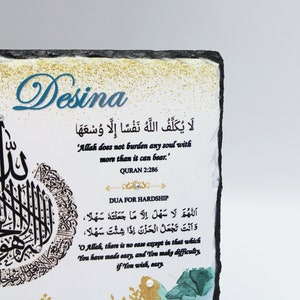 Desina
لَا يُكَلِّفُ اللَّهُ نَفْسًا إِلَّا وُسْعَهَا
'Allah does not burden any soul with
more than it can bear.'
QURAN 2:286
DUA FOR HARDSHIP
اَللّٰهُمَّ لَا سَهْلَ إِلَّا مَا جَعَلْتَهُ سَهْلًا،
وَأَنْتَ تَجْعَلُ الْحَزْنَ إِذَا شِئْتَ سَهْلًا.
'O Allah, there is no ease except in that which
You have made easy, and You make difficulty,
if You wish, easy.